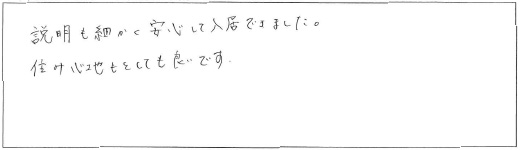 説明も細かく安心して入居できました。
住み心地もとても良いです。